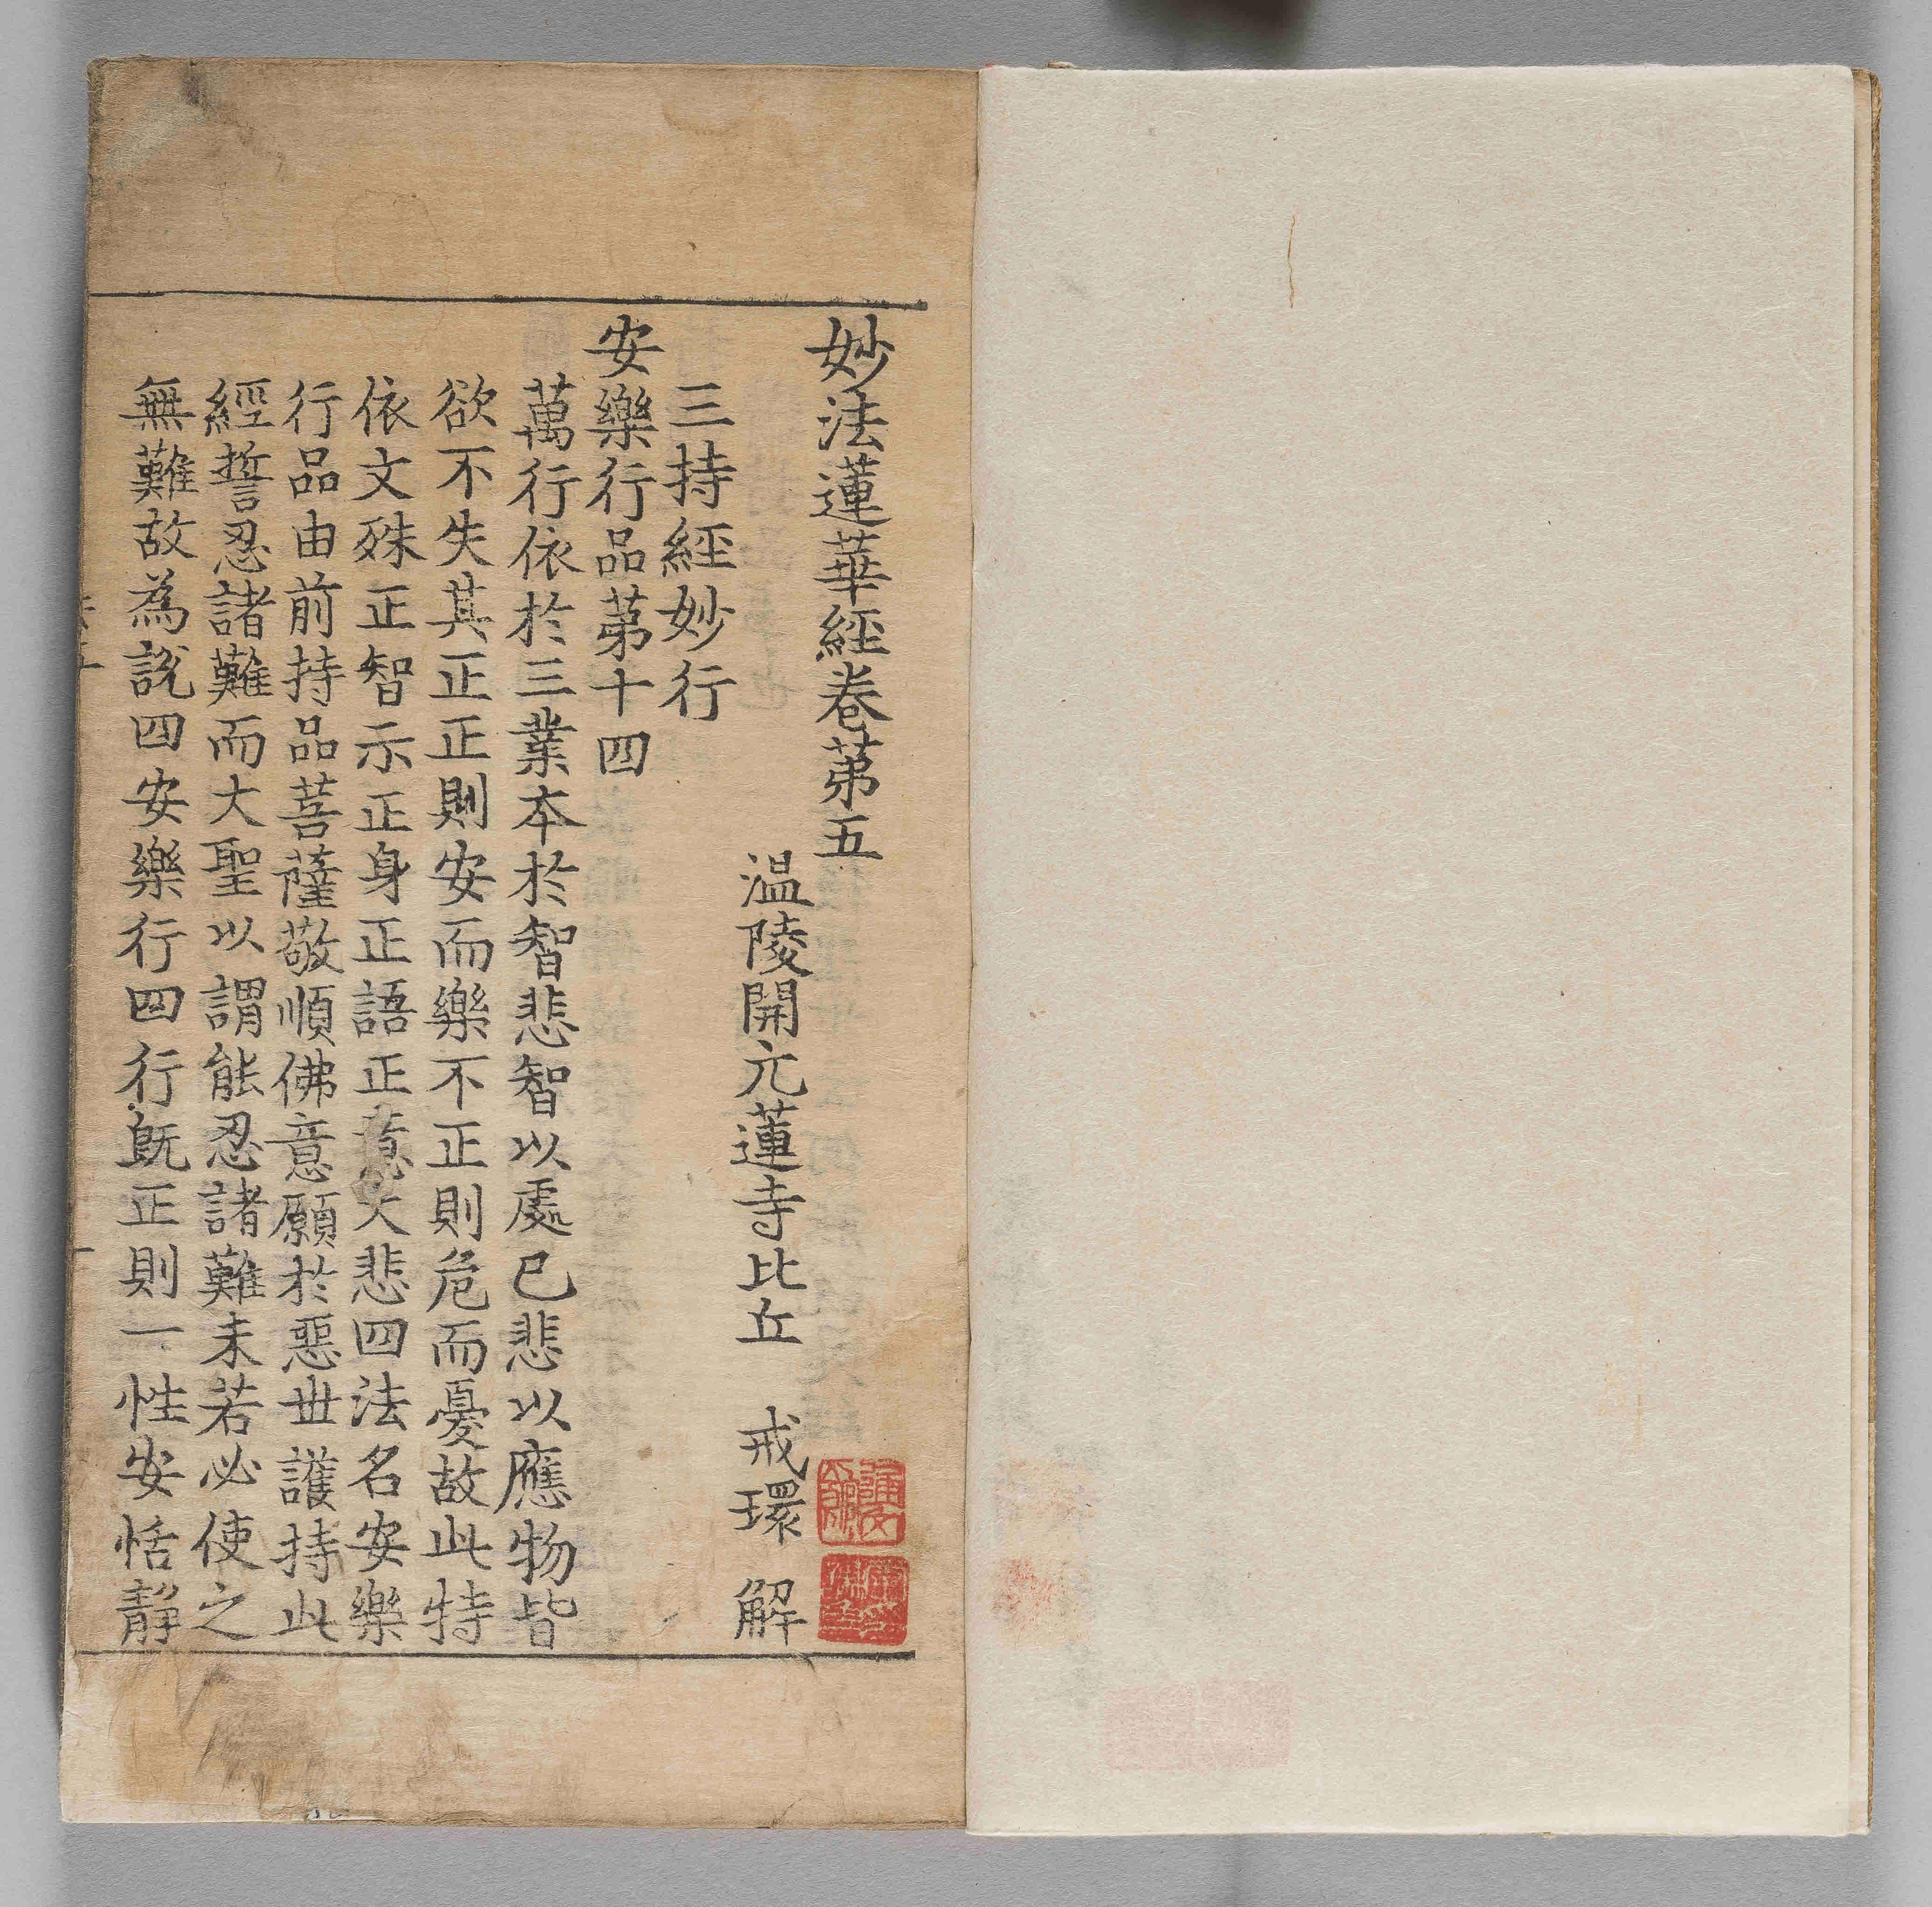 妙法蓮華經卷苐五
温陵開亢蓮寺比丘 戒環 解
三持經妙行
安樂行品苐十四
萬行依於三業本於智悲智以處已悲以應物皆
欲不失其正正則安而樂不正則危而憂故此特
依文殊正智示正身正語正意大悲四法名安樂
行品由前持品菩薩敬順佛意願於惡世護持此
經誓忍諸難而大聖以謂能忍諸難未若必使之
無難故為說四安樂行四行旣正則一性安恬靜